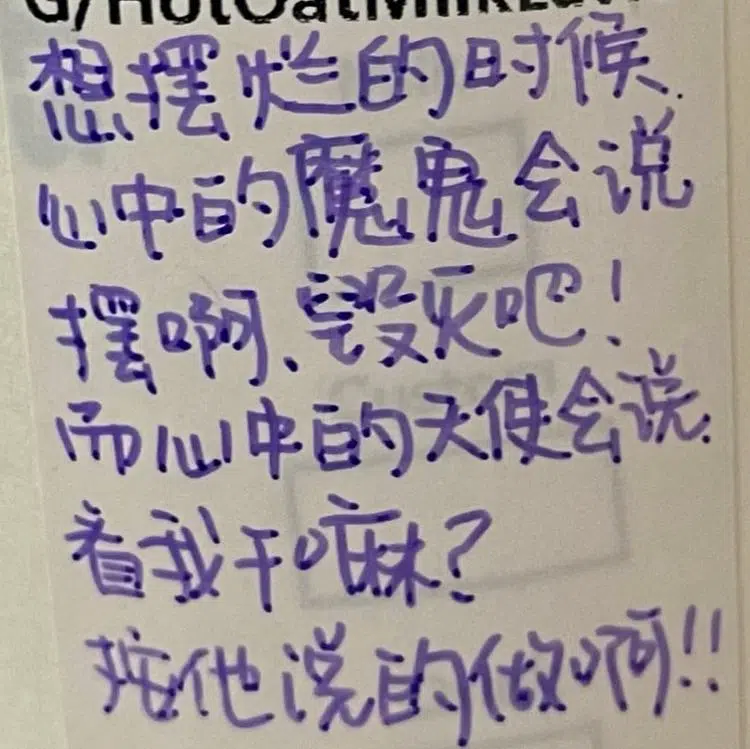 G/HotOatMilkLatt
想摆烂的时候.
心中的魔鬼会说
摆啊、毁灭吧！
而心中的天使会说:
看我干嘛？
按他说的做啊!!